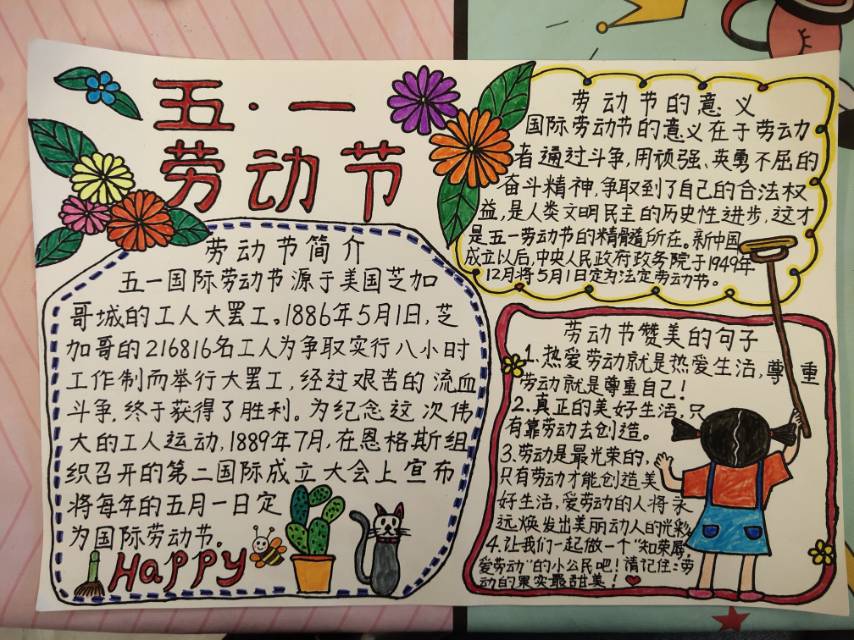 五·一
劳动节
劳动节简介
五一国际劳动节源于美国芝加
哥城的工人大罢工。1886年5月1日,芝
加哥的216816名工人为争取实行八小时
工作制而举行大罢工,经过艰苦的流血
斗争,终于获得了胜利。为纪念这次伟
大的工人运动,1889年7月,在恩格斯组
织召开的第二国际成立大会上宣布
将每年的五月一日定
为国际劳动节。
HAPPY
劳动节的意义
国际劳动节的意义在于劳动
者通过斗争,用顽强、英勇不屈的
奋斗精神,争取到了自己的合法权
益,是人类文明民主的历史性进步,这才
是五一劳动节的精髓所在。新中国
成立以后,中央人民政府政务院于1949年
12月将5月1日定为法定劳动节。
劳动节赞美的句子
1.热爱劳动就是热爱生活,尊重
劳动就是尊重自己!
2.真正的美好生活,只
有靠劳动去创造。
3.劳动是最光荣的,
只有劳动才能创造美
好生活,爱劳动的人将永
远焕发出美丽动人的光彩
4.让我们一起做一个"知荣辱,
爱劳动"的小公民吧!请记住:劳
动的果实最甜美!